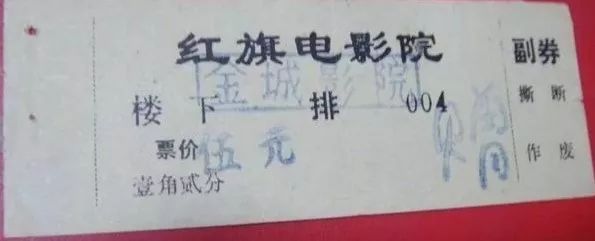 红旗电影院
金城影院
楼下 排 004
票价 伍元
壹角贰分
副券
撕断
作废